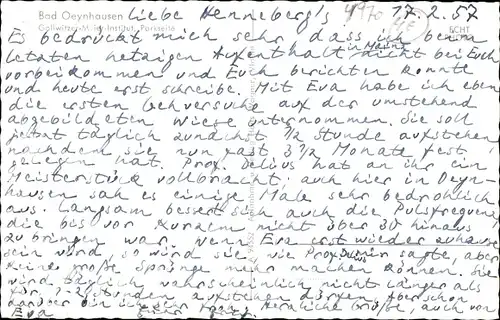 Bad Oeynhausen
Gollwitzer-Meier-Institut, Parkseite
ECHT
Liebe Henneberg's 17.2.57
Es bedrückt mich sehr dass ich beim
letzten hetzigen Aufenthalt in Mainz nicht bei Euch
vorbeikommen und Euch berichten konnte
und heute erst schreibe. Mit Eva habe ich eben
die ersten Gehversuche auf der umstehend
abgebildeten Wiese unternommen. Sie soll
täglich zunächst 1/2 Stunde aufstehen
nachdem sie nun fast 3 1/2 Monate fest
gelegen hat. Prof. Delius hat an ihr ein
Meisterstück vollbracht; auch hier in Oeyn-
hausen sah es einige Male sehr bedrohlich
aus. Langsam bessert sich auch die Pulsfrequenz
die bis vor kurzem nicht über 30 hinaus
zu bringen war. Wenn Eva erst wieder zuhause
sein wird, so wird sie, wie Prof. sagte, aber
keine große Sprünge mehr machen können. Sie
wird täglich wahrscheinlich nicht länger als
für Stunden aufstehen dürfen. Aber schon
darüber bin ich sehr froh. Herzliche Grüße, auch von
Eva Euer